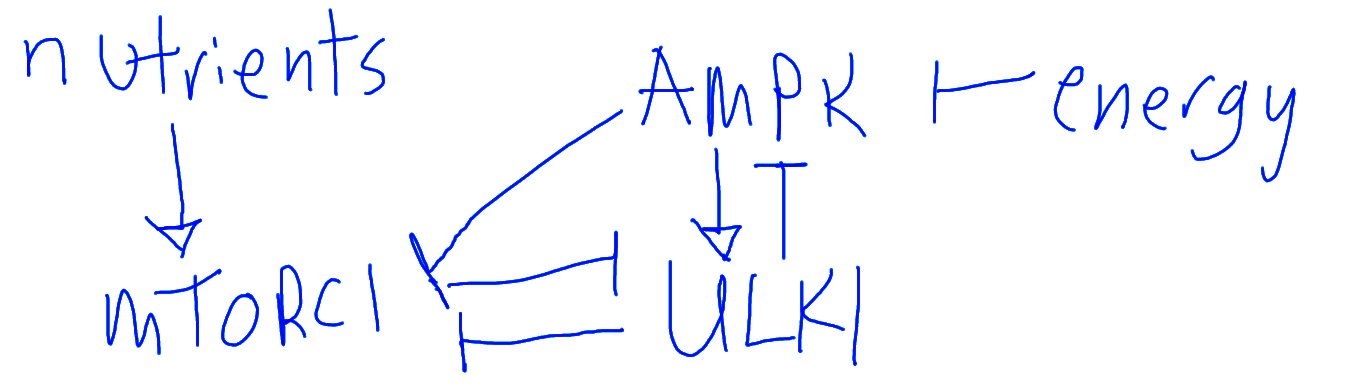 nutrients
AMPK energy
mTORC1 ULK1